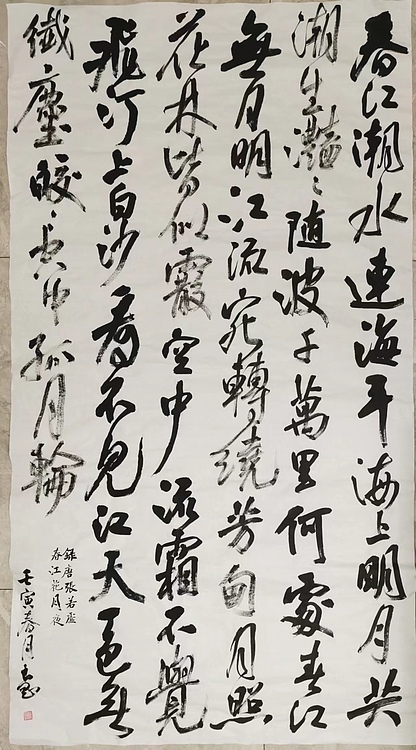 春江潮水連海平海上明月共
潮生灩〻随波千萬里何處春江
無月明江流宛轉繞芳甸月照
花林皆似霰空中流霜不覺
飛汀上白沙看不見江天一色無
纖塵皎〻空中孤月輪
錄唐張若虛
春江花月夜
壬寅春月